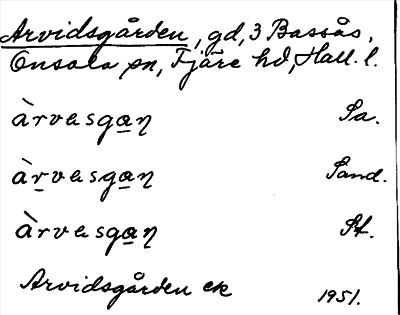 Arvidsgården, gd, 3 Bassås,
Onsala sn, Fjäre hd, Hall. l.
àrvasgan Sa.
àrvasgan Sand.
àrvasgan St.
Arvidsgården ek 1951.